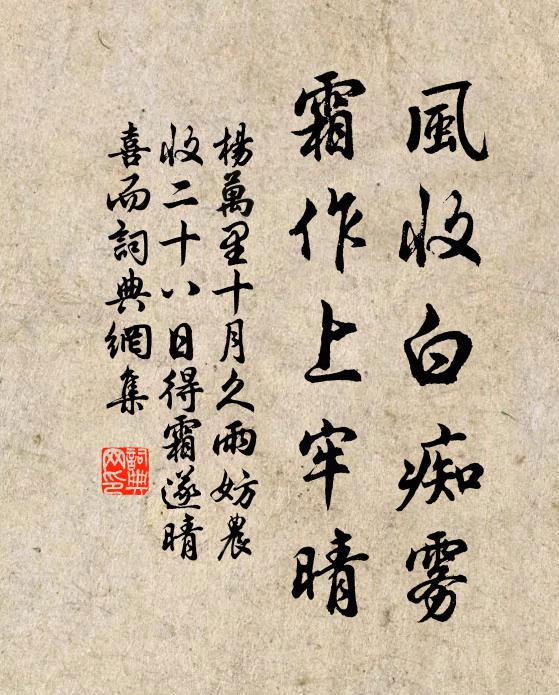 風收白痴雾
霜作上牢晴
楊萬里十月久雨妨農
收二十八日得霜遂晴
喜而詞典網集
詞典网印